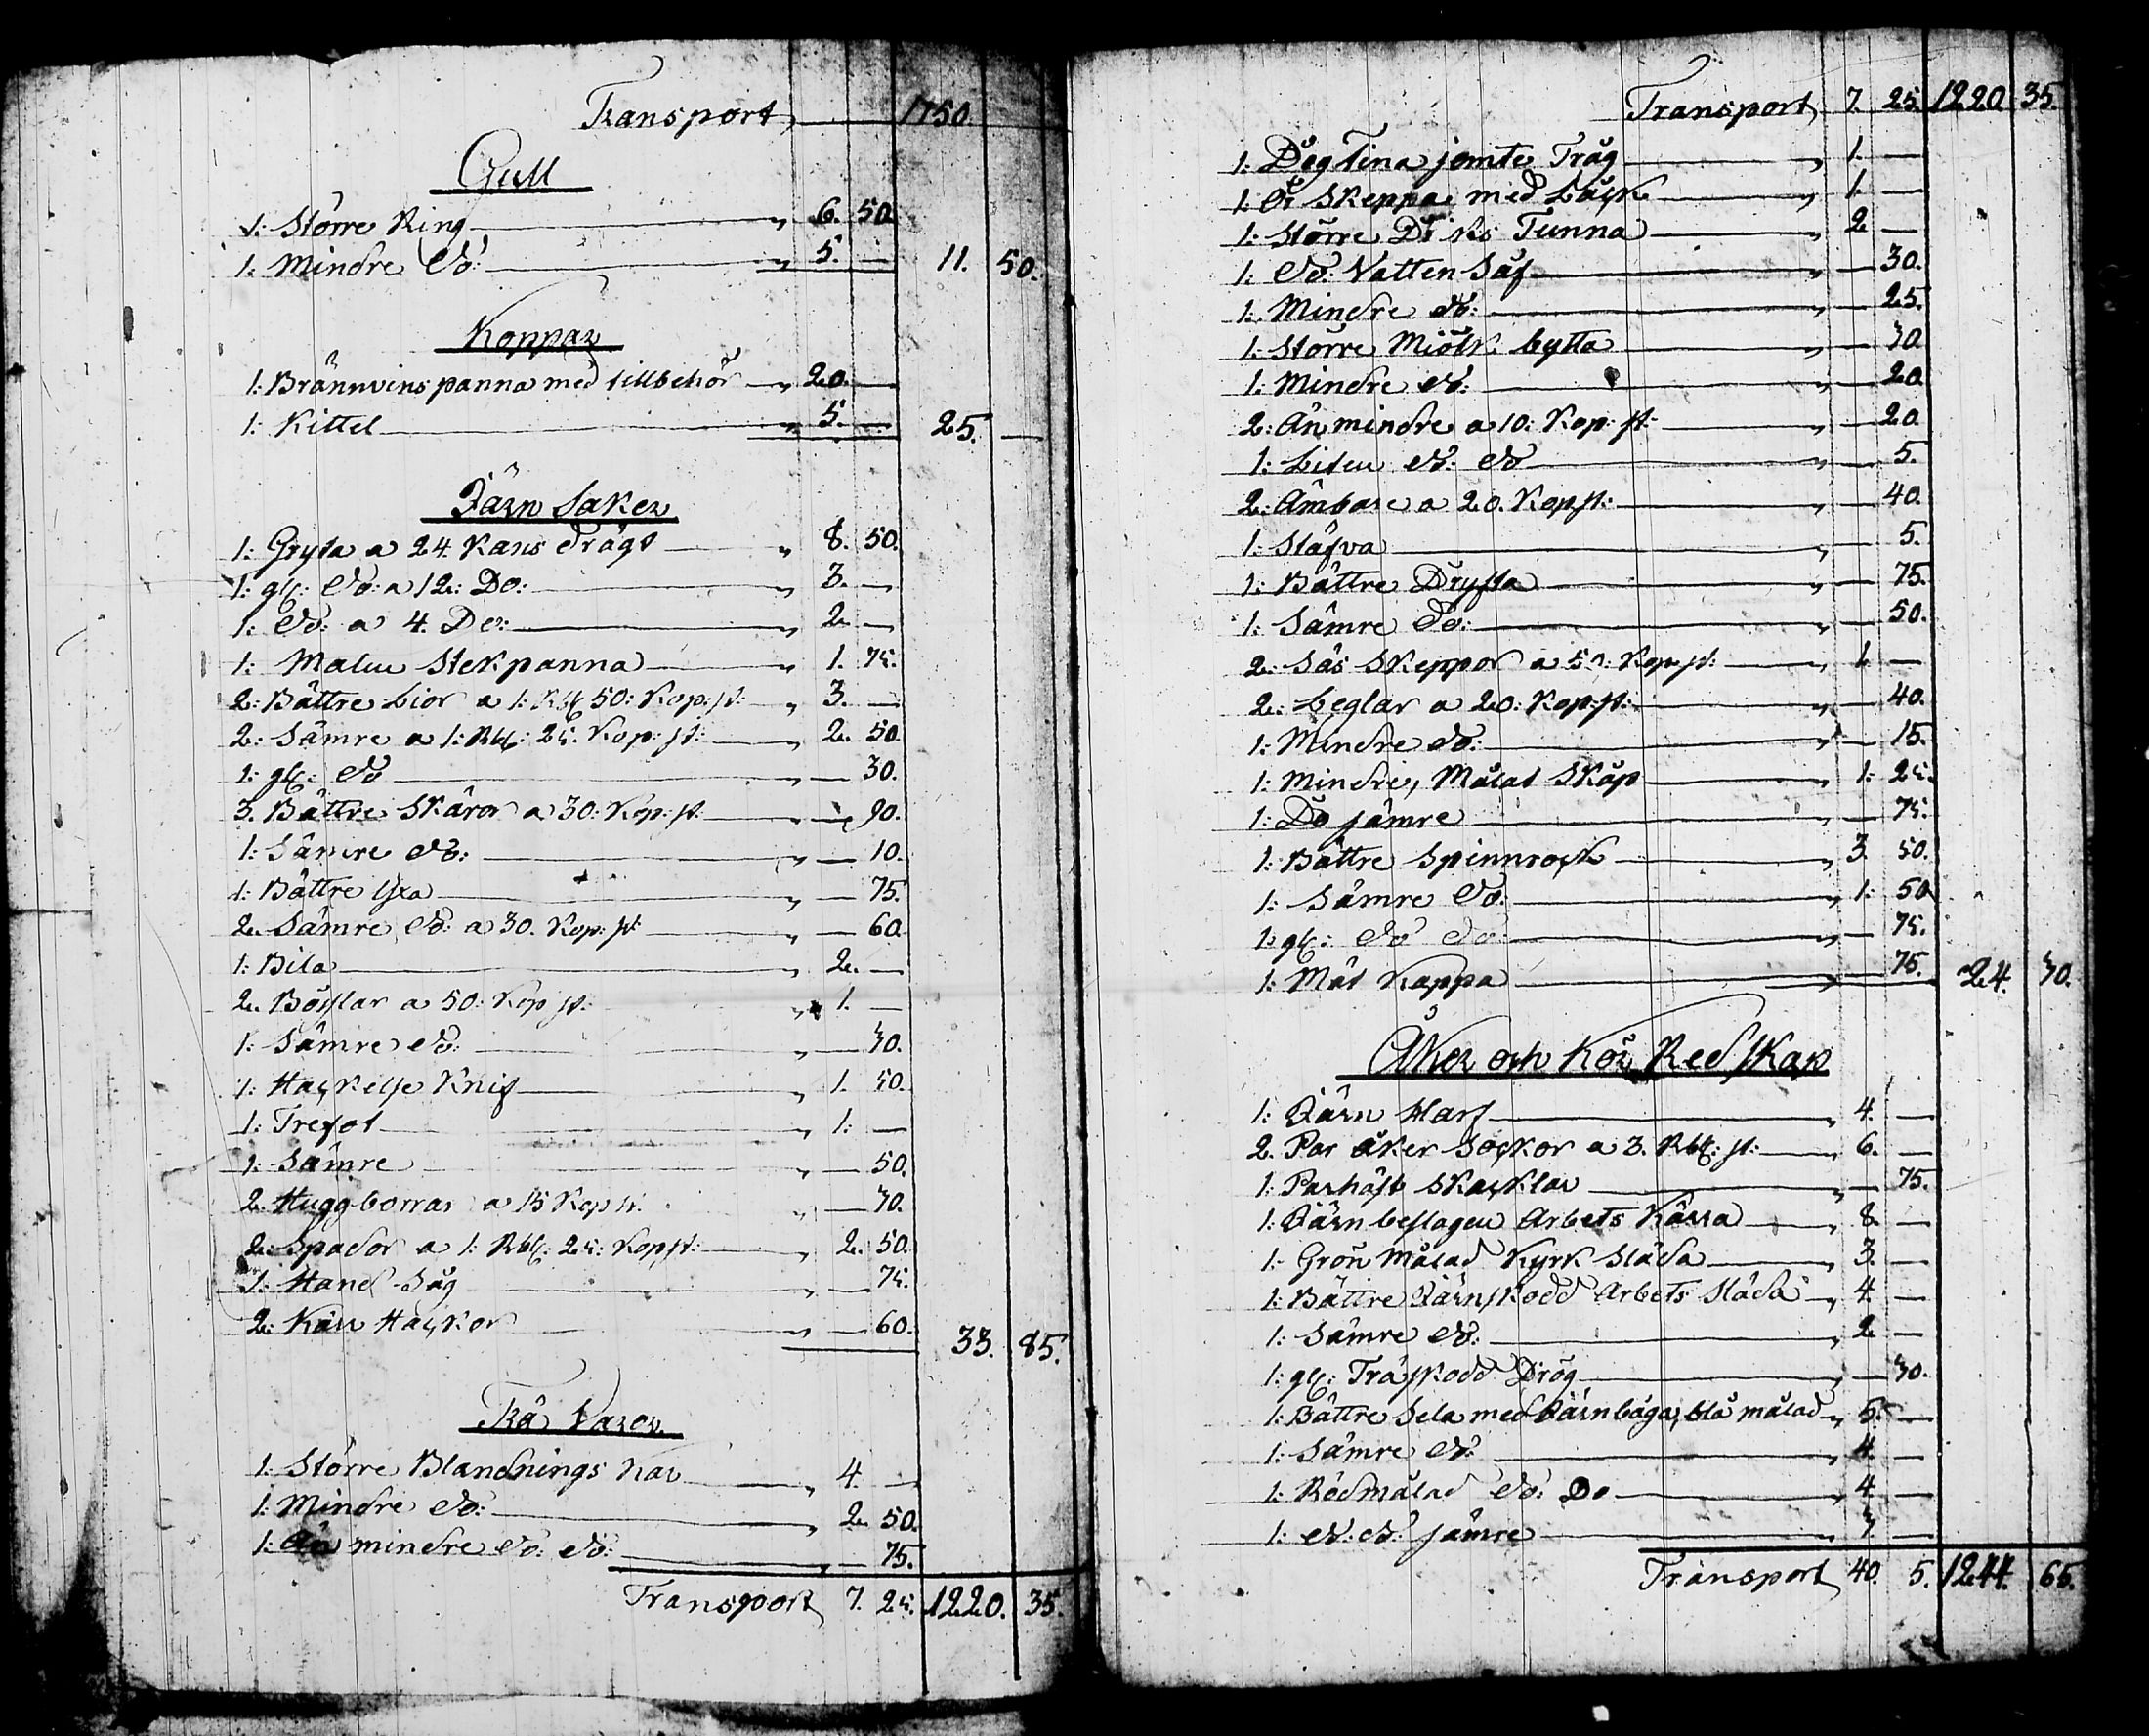 Transport 1150.
Gull
1: Större Ring " 6. 50.
1. Mindre do: " 5. — 11. 50.
Koppar
1: Brännvins panna med tillbehör " 20. —
1: Kittel " 5. — 25. —
Järn Saker
1: Gryta a 24 Kans drägt " 8. 50.
1: gl: do: a 12: Do: " 3. —
1: do: a 4. Do: " 2. —
1: Malm Stekpanna " 1. 75.
2: Bättre Lior a 1: Rbl 50: Kop: st: " 3. —
2: Sämre a 1: Rbl: 25. Kop: st: " 2. 50.
1: gl: do " — 30.
3. Bättre Skäror a 30: Kop: st: " — 90.
1: Sämre do: " — 10.
1: Bättre Yxa " — 75.
2. Sämre do: a 30. Kop: st: " — 60.
1: Bila " 2. —
2. Böslar a 50: Kop st: " 1. —
1: Sämre do: " — 30.
1: Hackelse Knif " 1. 50.
1: Trefot " 1: —
1: Sämre " — 50.
2. Hugg borrar a 15 Kop st. " — 30.
2: Spador a 1: Rbl: 25: Kop st: " 2. 50.
1: Hand Såg — 75.
2: Kärr Hackor " — 60. 33. 85.
Trä Varor
1: Större Blandnings Kar " 4. —
1: Mindre do: " 2. 50.
1: Än mindre do: do: " — 75.
Transport 7. 25. 1220. 35.
Transport 7. 25. 1220. 35.
1: Deg Tina jemte Tråg " 1. —
1: Ör Skeppa med Låck " 1. —
1: Större Driks Tunna " 2 —
1: do: Vatten Såf " — 30.
1: Mindre do: " — 25.
1: Större Miölk bytta " — 30.
1: Mindre do: " — 20.
2: Än mindre a 10: Kop: st: " — 20.
1: Liten do: do " — 5.
2: Ämbare a 20. Kop st: " — 40.
1: Stäfva " — 5.
1: Bättre Dryfta " — 75.
1: Sämre Do: " — 50.
2: Sås Skeppor a 50: Kop. st: " 1 —
2: Leglar a 20: Kop: st: " — 40.
1: Mindre do: " — 15.
1: Mindre, Målat Skåp " 1: 25.
1: Do sämre " — 75.
1: Bättre Spinnrock " 3. 50.
1: Sämre do: " 1: 50
1: gl: do do: " — 75.
1: Måt Kappa — 75. 24. 30.
Åker och Kör Redskap
1: Järn Harf " 4. —
2. Par åker Sockor a 3. Rbl: st: " 6. —
1: Parhäst Skacklar " — 75.
1: Järn beslagen Arbets Kärra " 8. —
1: Grön målad Kyrk Släda " 3. —
1: Bättre Järnskodd Arbets Släda " 4. —
1: Sämre do: " 2 —
1: gl: Träskodd Drög " — 30.
1: Bättre Sela med Järnbåga, blå målad " 5. —
1: Sämre do: " 4. —
1: Rödmålad do: Do " 4 —
1: do: do: sämre " 3 —
Transport 40. 5. 1244. 65.